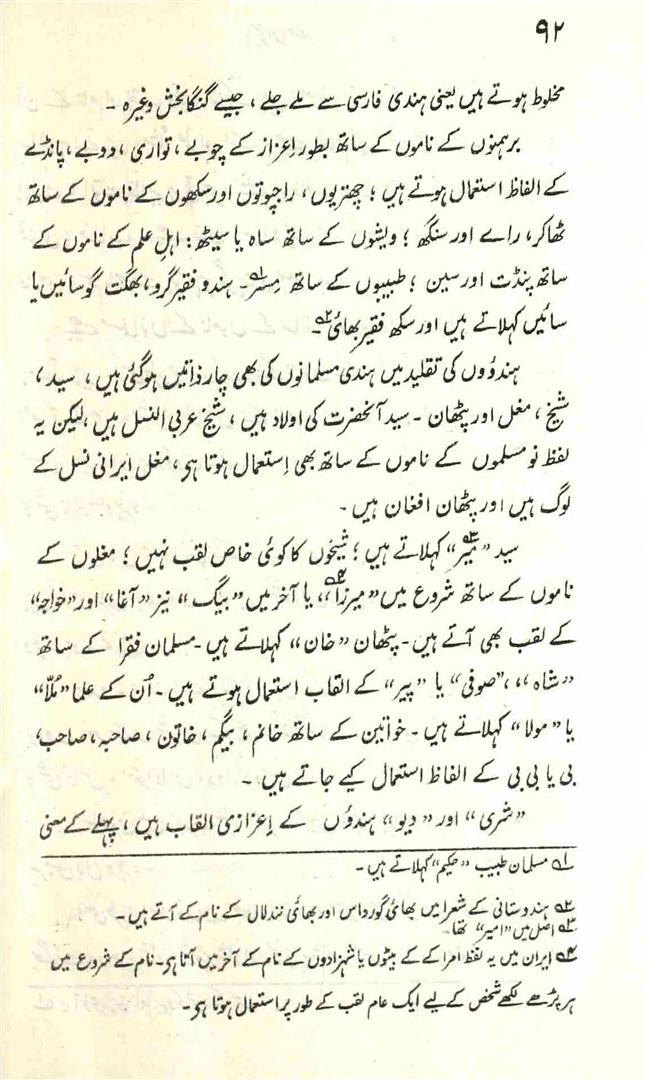 ۹۲
مخلوط ہوتے ہیں یعنی ہندی فارسی سے ملے جلے ، جیسے گنگا بخش وغیرہ ۔
برہمنوں کے ناموں کے ساتھ بطور اِعزاز کے چوبے ، تواری ، دوبے ، پانڈے
کے الفاظ استعمال ہوتے ہیں ؛ چھتریوں ، راجپوتوں اور سکھوں کے ناموں کے ساتھ
ٹھاکر ، راے اور سنگھ ؛ ویشوں کے ساتھ ساہ یا سیٹھ : اہلِ علم کے ناموں کے
ساتھ پنڈت اور سین ؛ طبیبوں کے ساتھ مِسر۱؎ ۔ ہندو فقیر گرو ، بھگت گوسائیں یا
سائیں کہلاتے ہیں اور سکھ فقیر بھائی۲؎ ۔
ہندوٗوں کی تقلید میں ہندی مسلمانوں کی بھی چار ذاتیں ہوگئی ہیں ، سید ،
شیخ ، مغل اور پٹھان ۔ سید آنحضرت کی اولاد ہیں ، شیخ عربی النسل ہیں ، لیکن یہ
لفظ نو مسلموں کے ناموں کے ساتھ بھی اِستعمال ہوتا ہی ، مغل ایرانی نسل کے
لوگ ہیں اور پٹھان افغان ہیں ۔
سید ”میر۳؎“ کہلاتے ہیں ؛ شیخوں کا کوئی خاص لقب نہیں ؛ مغلوں کے
ناموں کے ساتھ شروع میں ”میرزا۴؎“ یا آخر میں ”بیگ“ نیز ”آغا“ اور ”خواجہ“
کے لقب بھی آتے ہیں ۔ پٹھان ”خان“ کہلاتے ہیں ۔ مسلمان فقرا کے ساتھ
”شاہ“ ، ”صوفی“ یا ”پیر“ کے القاب استعمال ہوتے ہیں ۔ اُن کے علما ”مُلّا“
یا ”مولا“ کہلاتے ہیں ۔ خواتین کے ساتھ خانم ، بیگم ، خاتون ، صاحبہ ، صاحب ،
بی یا بی بی کے الفاظ استعمال کیے جاتے ہیں ۔
”شری“ اور ”دیو“ ہندوٗں کے اِعزازی القاب ہیں ، پہلے کے معنی
۱؎ مسلمان طبیب ”حکیم“ کہلاتے ہیں ۔
۲؎ ہندوستانی کے شعرا میں بھائی گورداس اور بھائی نندلال کے نام کے آتے ہیں ۔
۳؎ اصل میں ”امیر“ تھا ۔
۴؎ ایران میں یہ لفظ امرا کے کے بیٹوں یا شہزادوں کے نام کے آخر میں آتا ہی ۔ نام کے شروع میں
ہر پڑھے لکھے شخص کے لیے ایک عام لقب کے طور پر استعمال ہوتا ہی ۔